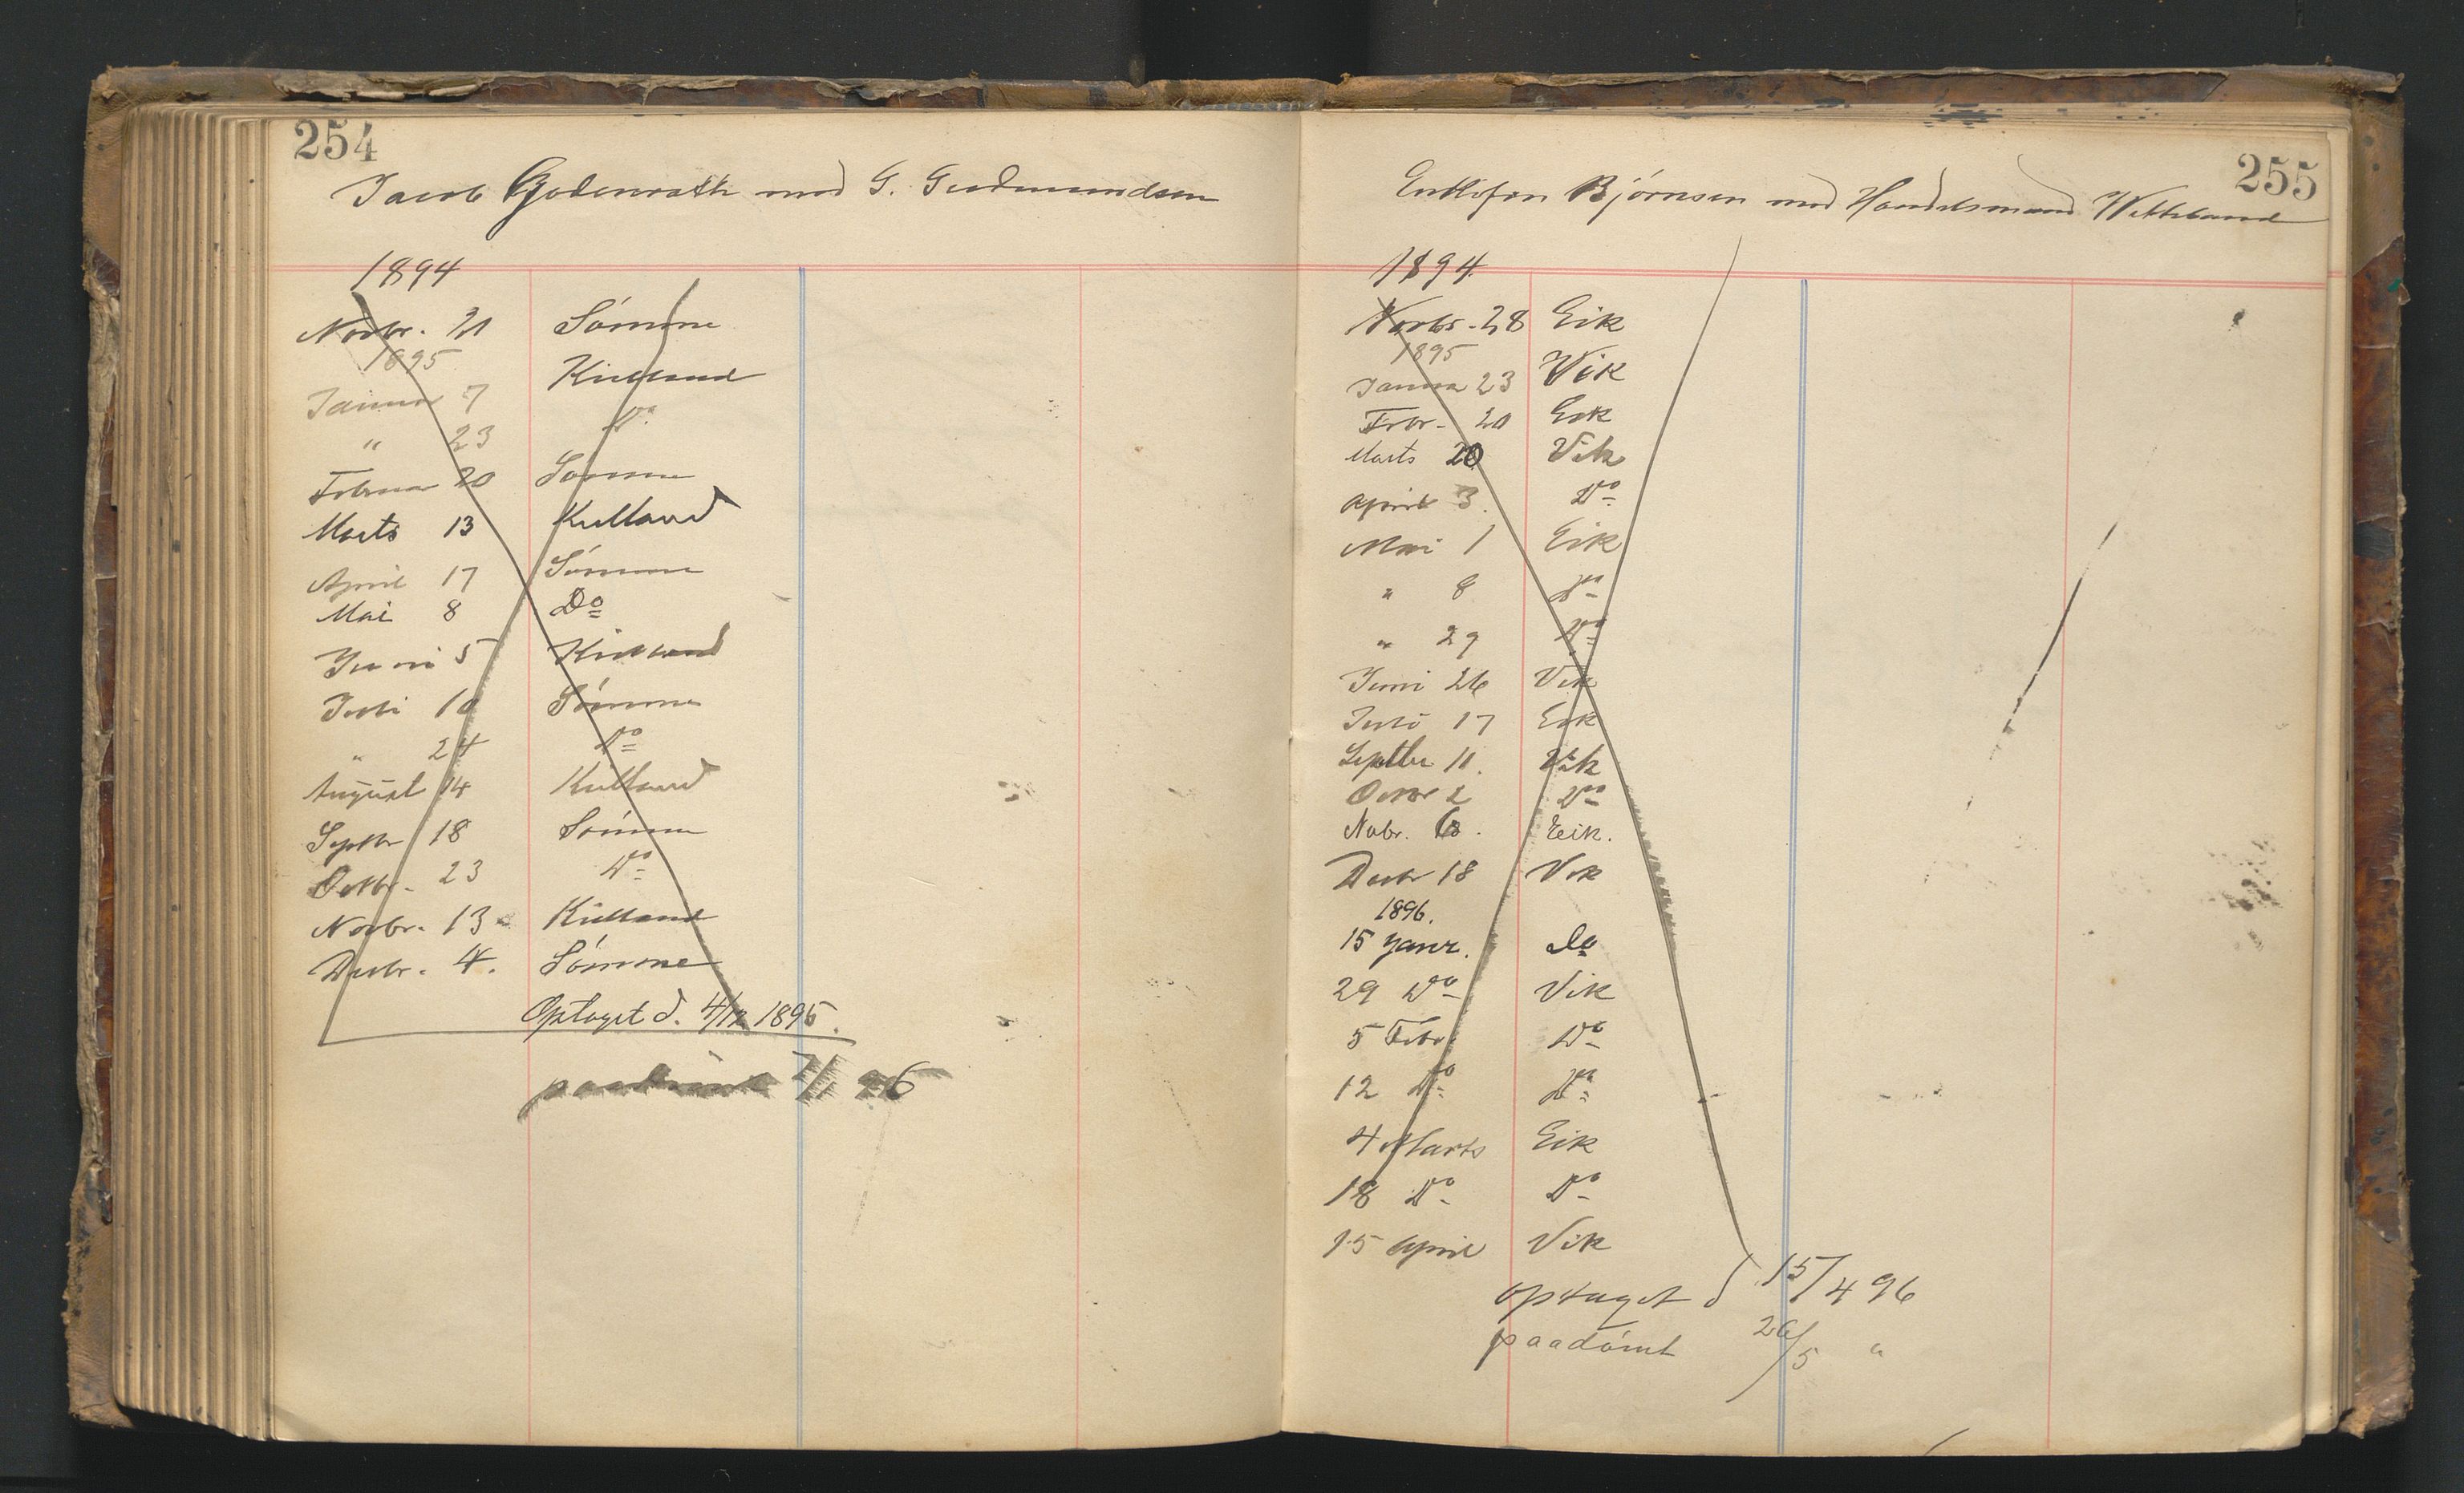 254
Jacob Godenrath mod G. Gudmundsen
1894
Novbr. 21 Sømme
1895
Januar 7 Kielland
" 23 Do
Februar 20 Sømme
Marts 13 Kielland
April 17 Sømme
Mai 8 Do
Juni 5 Kielland
Juli 10 Sømme
" 24 Do
August 14 Kielland
Septbr 18 Sømme
Octbr. 23 Do
Novbr. 13 Kielland
Decbr. 4. Sømme
Optaget d. 4/12 1895.
paadømt 7/1 96
255
Bjørnsen mod Handelsmand
1894
Novbr. 28 Eik
1895
Januar 23 Vik
Febr. 20 Eik
Marts 20 Vik
April 3. Do
Mai 1 Eik
" 8 Do
" 29 Do
Juni 26 Vik
Juli 17 Eik
Septbr 11. Vik
Octbr 2 Do
Nobr. 6. Eik.
Decbr 18 Vik
1896.
15 Janr. Do
29 Do Vik
5 Febr Do
12 Do Do
4 Marts Eik
18 Do Do
15 April Vik
optaget d 15/4 96
paadømt 26/5 "